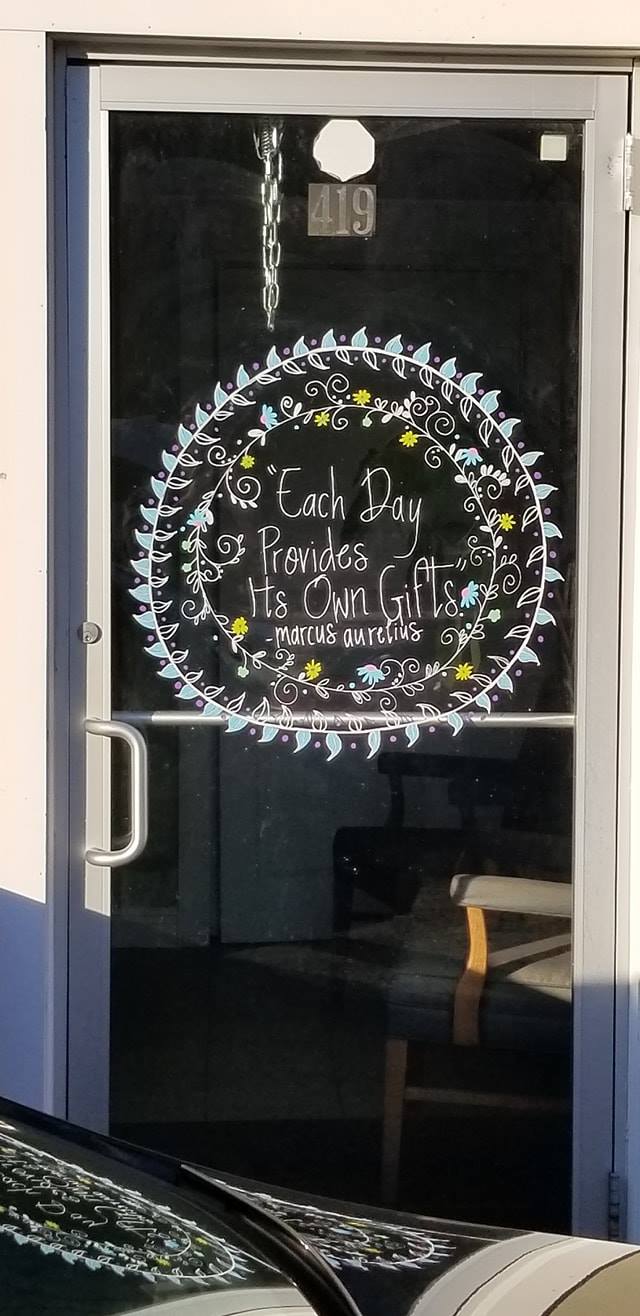 419
"Each Day
Provides
Its Own Gifts."
-marcus aurelius